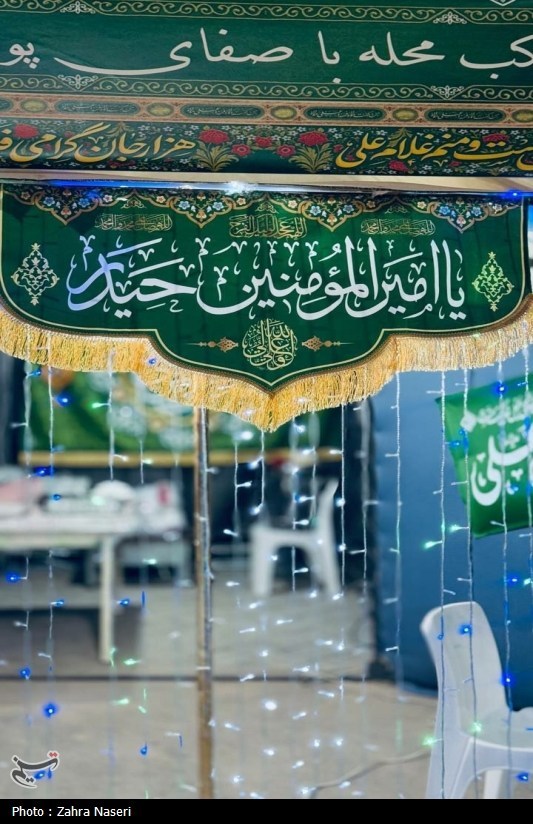 کب محله با صفای پو
هزار جان گرامی ف
ست و منم غلام علی
یا امیر المؤمنین حیدر
علی
تسنیم
Photo : Zahra Naseri